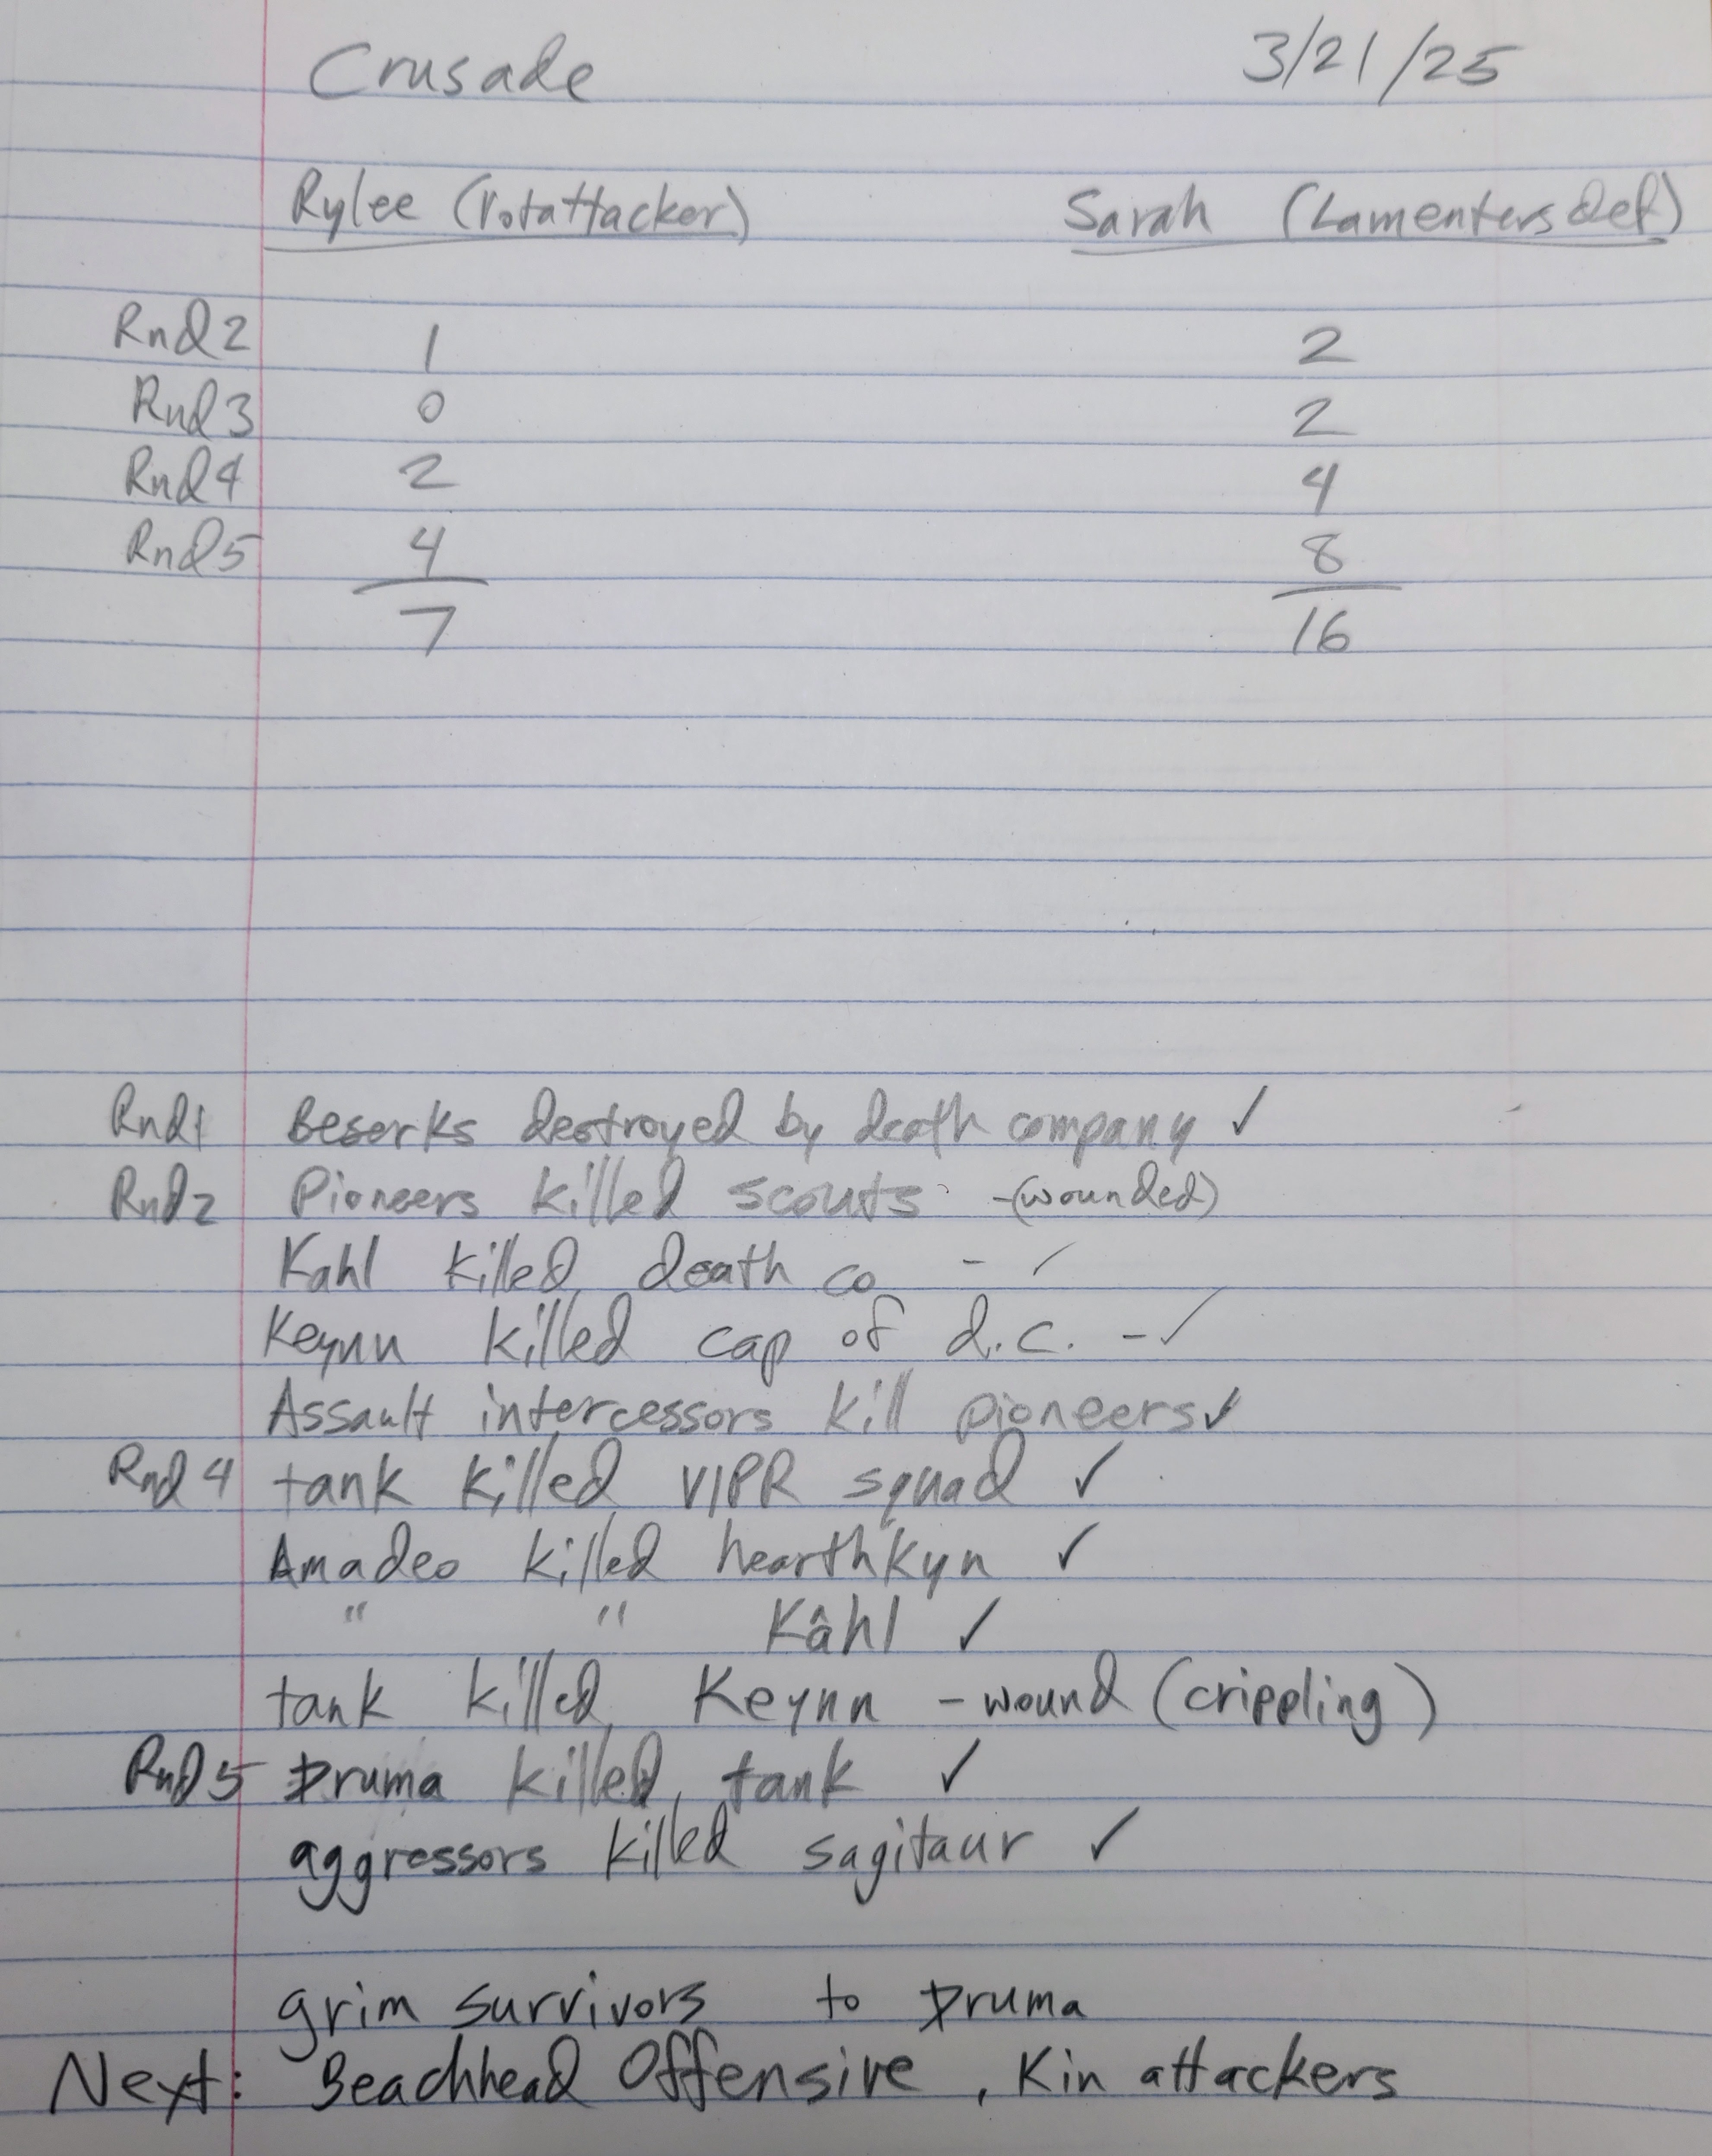 Crusade 3/21/25
Rylee (Votattacker) Sarah (Lamenters def)
Rnd2 1 2
Rnd3 0 2
Rnd4 2 4
Rnd5 4 8
7 16
Rnd1 Beserks destroyed by death company ✓
Rnd2 Pioneers killed scouts -(wounded)
Kahl killed death co - ✓
Keynn killed cap of d.c. - ✓
Assault intercessors kill pioneers ✓
Rnd 4 tank killed VIPR squad ✓
Amadeo killed hearthkyn ✓
" " Kâhl ✓
tank killed Keynn - wound (crippling)
Rnd 5 killed tank ✓
aggressors killed sagitaur ✓
grim survivors to
Next: Beachhead Offensive, Kin attackers